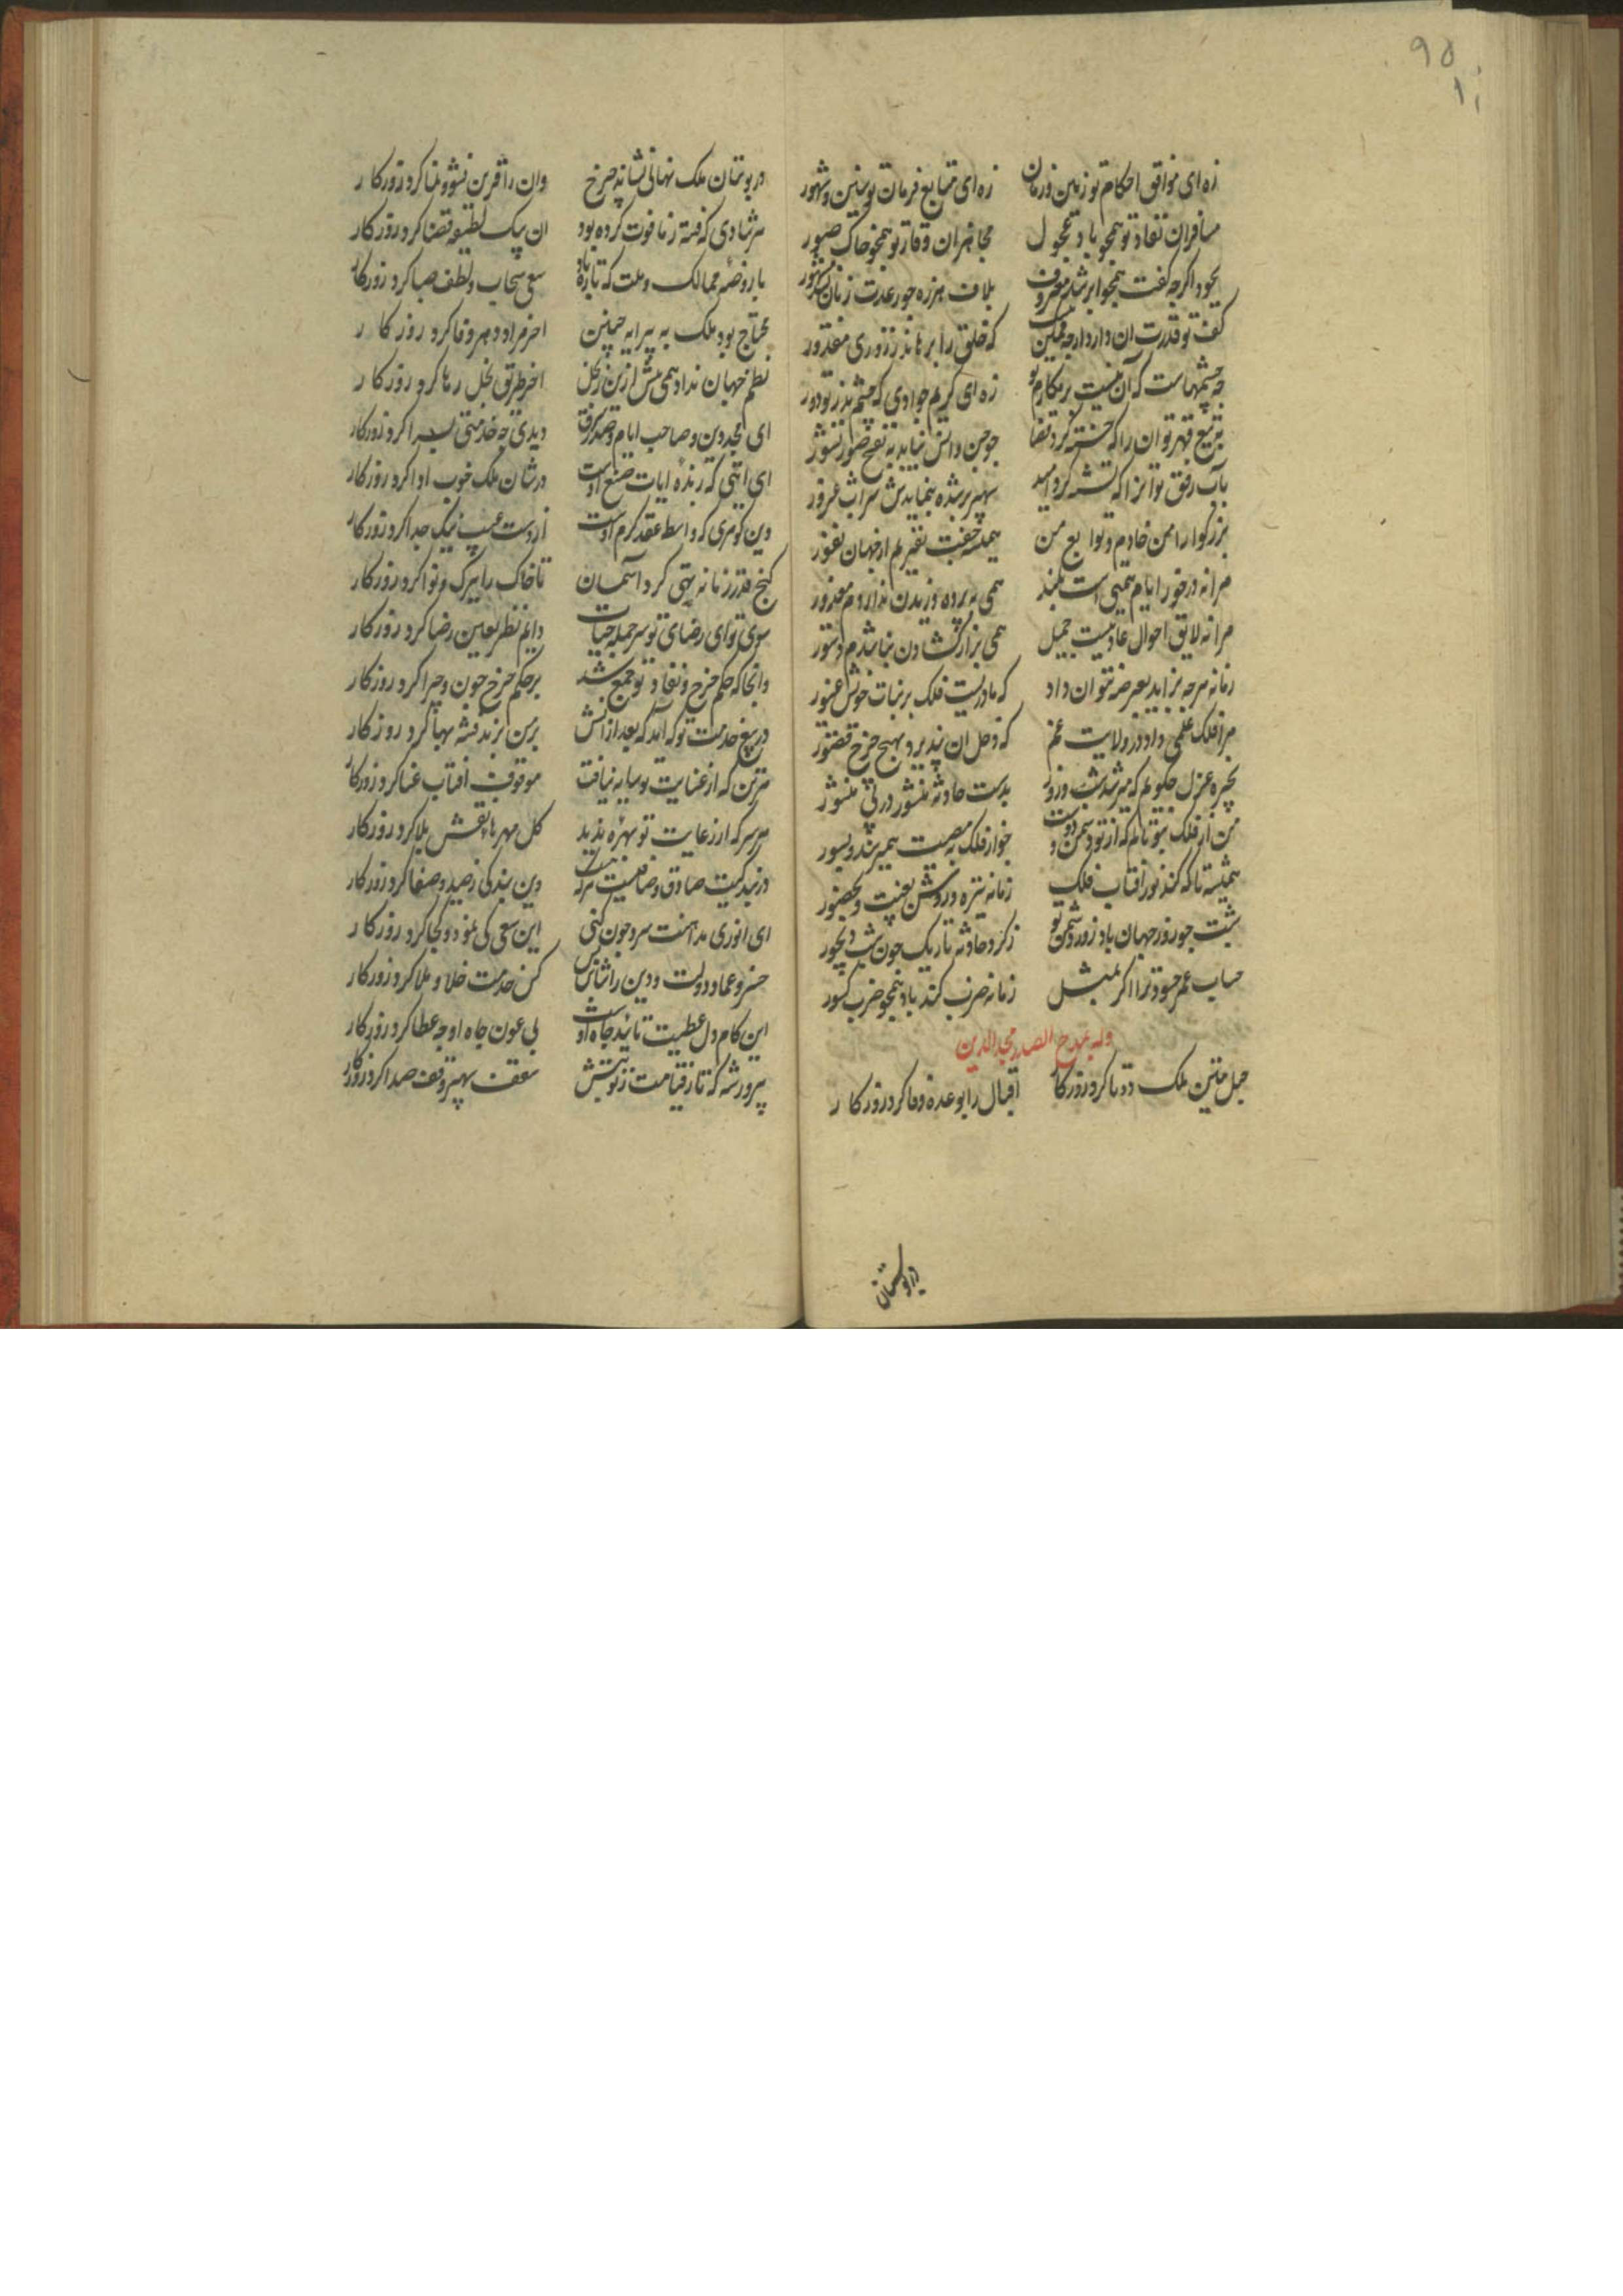 ۹۵
زه ای موافق احکام تو زمین و زمان زه ای متابع فرمان تو سنین و شهور
مسافران نفاذ تو همچو باد عجول مجاهران وقار تو همچو خاک صبور
بجود اگرچه کفت همچو ابر شد معروف بلاف هرزه چو رعدت زبان نشد مشهور
کفت تو قدرت آن دارد ارچه ممکن نیست که خلق را برهاند ز روزی مقدور
چه چشمهاست که آن نیست بر مکارم تو زه ای کریم جوادی که چشم بد ز تو دور
بتیغ قهر تو آن را که خسته کرد قضا چو جن و انس نیاید به نفخ صور نشور
بآب رفق تو انرا که تشنه کرد امید سپهر برشده ننمایدش سراب غرور
بزرکوارا من خادم و توابع من همیشه جفت نفیریم از جهان نفور
مرا نه درخور ایام همتی است بلند همی به پرده دریدن نداردم معذور
مرا نه لایق احوال عادتیست جمیل همی براز کشادن نباشدم دستور
زمانه هرچه بزاید بعرصه نتوان داد که مادریست فلک بر بنات خویش غیور
مرا فلک عملی داد در ولایت غم که دخل آن نپذیرد بهیچ خرج قصور
بخیره عزل چه جویم که میرسد شب و روز بدست حادثه منشور در پی منشور
من از فلک بتو نالم که از تو دشمن و دوست چو از فلک به مصیبت همی رسند و بسور
همیشه تا که کند نور آفتاب فلک زمانه تیره و روشن بغیبت و بحضور
شبت چو روز جهان باد و روز دشمن تو ز کرد حادثه تاریک چون شب دیجور
حساب عمر حسود ترا اکر بمثل زمانه ضرب کند باد همچو ضرب کسور
وله بمدح الصدر مجد الدین
حبل متین ملک دو تا کرد روزکار اقبال را بوعده وفا کرد روزکار
در بوستان
در بوستان ملک نهالی نشاند چرخ وان را قرین نشو و نما کرد روزکار
هر شادی که فتنه ز ما فوت کرده بود ان یک لطیفه قضا کرد روزکار
با روضه ممالک و ملت که تازه باد سعی سحاب و لطف صبا کرد روزکار
محتاج بود ملک به پیرایه چنین اخر مراد و مهر وفا کرد روزکار
نظم جهان نداد همی بیش ازین ز بخل اخر طریق بخل رها کرد روزکار
ای مجد دین و صاحب ایام و صدر شرق دیدی چه خدمتی بسزا کرد روزکار
ای ایتی که زبده ایات صنع اوست در شان ملک خوب ادا کرد روزکار
وین کوهری که واسطه عقد کرم اوست از دست عیب نیک جدا کرد روزکار
کنج قدر ز مانه تهی کرد آسمان تا خاک را ببرک و نوا کرد روزکار
سوی تو ای رضای تو سرجمله حیات دایم نظر بعین رضا کرد روزکار
وانجا که حکم چرخ و نفاذ تو جمع شد بر حکم چرخ چون و چرا کرد روزکار
در بیع خدمت تو که آمد که بعد از آنش برمن یزید فتنه بها کرد روزکار
هرتن که از عنایت تو سایه نیافت موقوف آفتاب عنا کرد روزکار
هرسر که از رعایت تو بهره ندید کل مهرهاش نقش بلا کرد روزکار
در بندکیت صادق و صافیست هرکه هست وین بندکی ز صدق و صفا کرد روزکار
ای انوری مداهنت سرد چون کنی این سعی کی نمود و کجا کرد روزکار
خسرو عماد دولت و دین را شناس بس کش خدمت خلا و ملا کرد روزکار
این کام دل عطیت تائید جاه اوست بی عون جاه او چه عطا کرد روزکار
پیروز شه که تا ز قیامت ز نوبتش سقف سپهر وقف صدا کرد روزکار